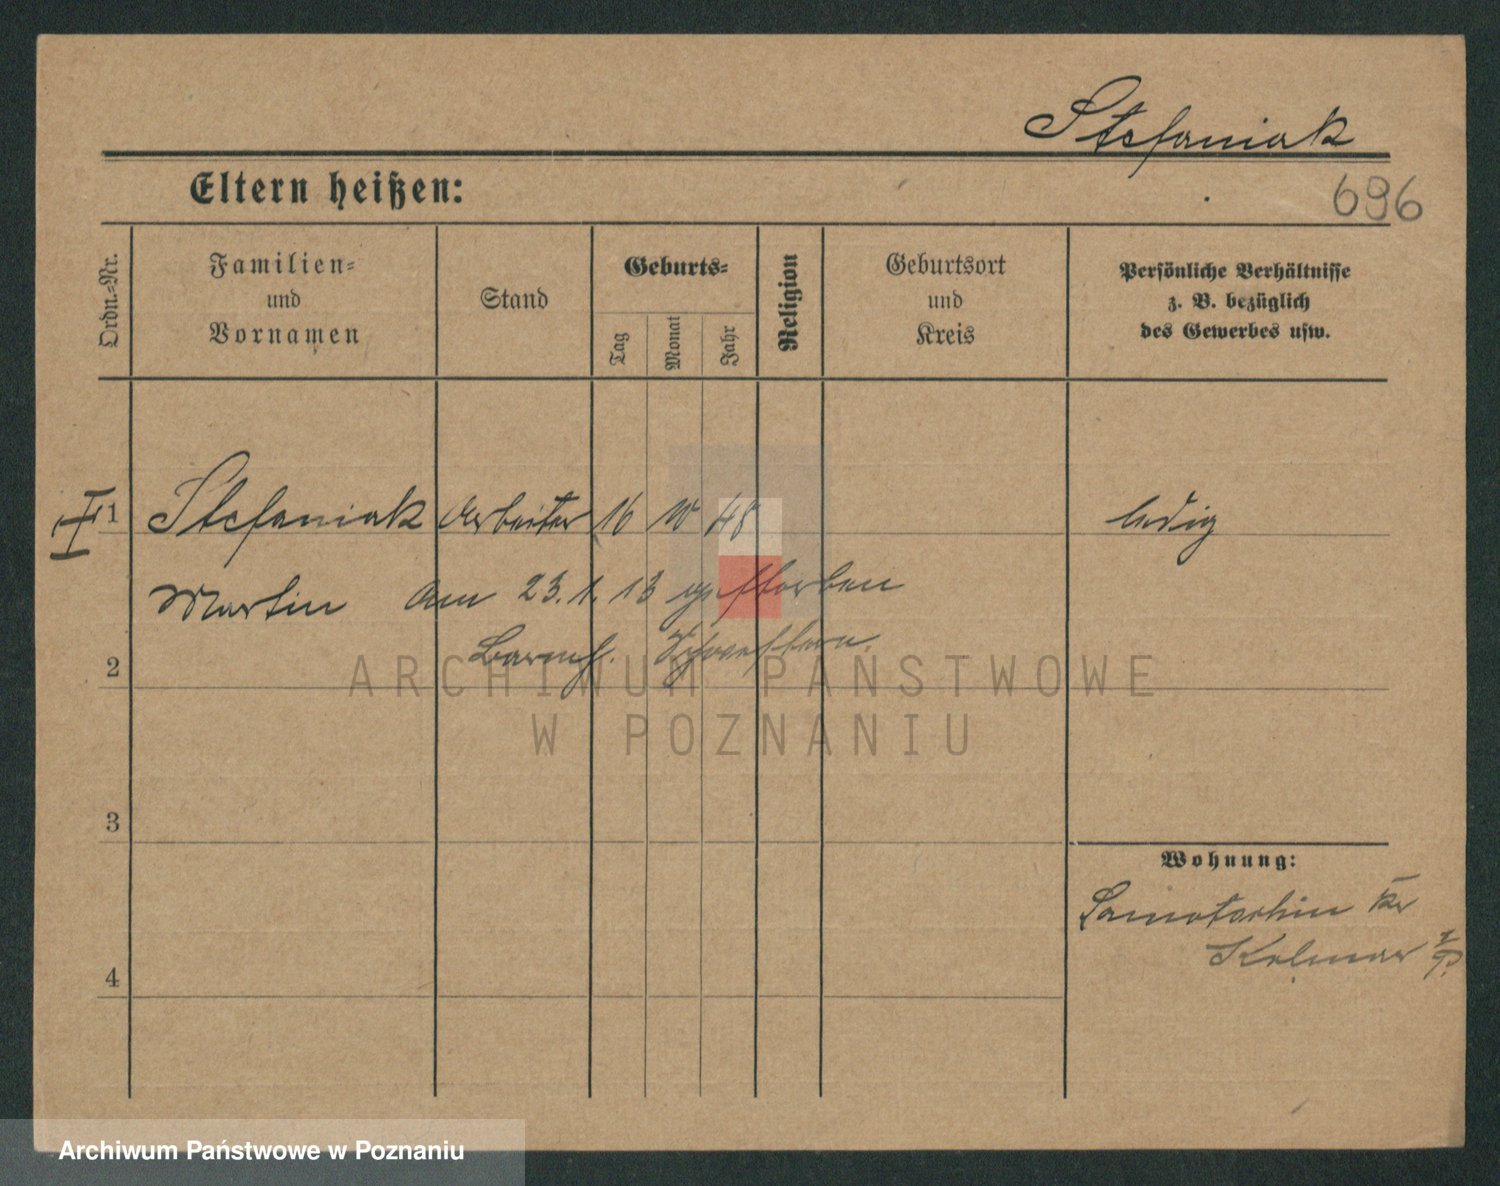 Stefaniak
Eltern heißen:
696
Ordn.-Nr.
Familien-
und
Vornamen
Stand
Geburts-
Tag
Monat
Jahr
Religion
Geburtsort
und
Kreis
Persönliche Verhältnisse
z. B. bezüglich
des Gewerbes usw.
I 1 Stefaniak Arbeiter 16 10 48 ledig
Martin am 23.1.13 gestorben
2 Barmh. Schwestern.
ARCHIWUM PAŃSTWOWE
W POZNANIU
3
Wohnung:
Samotschin Kr
Kolmar i/P.
4
Archiwum Państwowe w Poznaniu